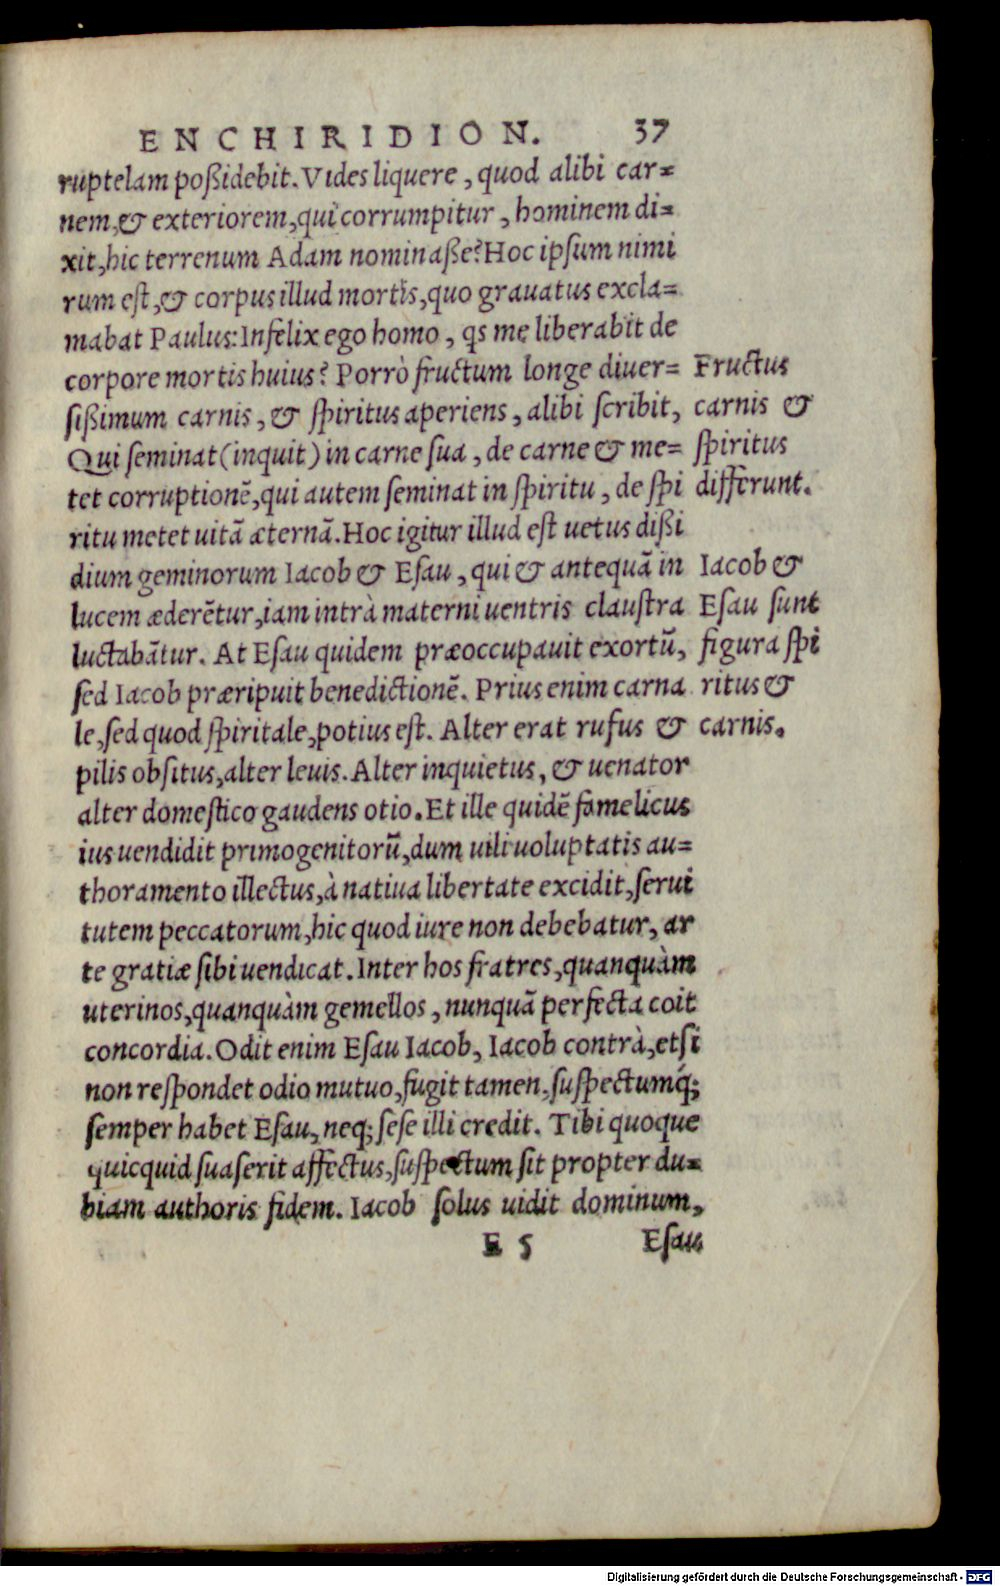 ENCHIRIDION. 37
ruptelam poßidebit. Vides liquere, quod alibi car=
nem, & exteriorem, qui corrumpitur, hominem di=
xit, hic terrenum Adam nominaße? Hoc ipsum nimi
rum est, & corpus illud mortis, quo grauatus excla=
mabat Paulus: Infelix ego homo, qs me liberabit de
corpore mortis huius? Porrò fructum longe diuer=
sißimum carnis, & spiritus aperiens, alibi scribit,
Qui seminat (inquit) in carne sua, de carne & me=
tet corruptionē, qui autem seminat in spiritu, de spi
ritu metet uitā æternā. Hoc igitur illud est uetus dißi
dium geminorum Iacob & Esau, qui & antequā in
lucem æderētur, iam intrà materni uentris claustra
luctabātur. At Esau quidem præoccupauit exortū,
sed Iacob præripuit benedictionē. Prius enim carna
le, sed quod spiritale, potius est. Alter erat rufus &
pilis obsitus, alter leuis. Alter inquietus, & uenator
alter domestico gaudens otio. Et ille quidē famelicus
ius uendidit primogenitorū, dum uili uoluptatis au=
thoramento illectus, à natiua libertate excidit, serui
tutem peccatorum, hic quod iure non debebatur, ar
te gratiæ sibi uendicat. Inter hos fratres, quanquàm
uterinos, quanquàm gemellos, nunquā perfecta coit
concordia. Odit enim Esau Iacob, Iacob contrà, etsi
non respondet odio mutuo, fugit tamen, suspectumq́;
semper habet Esau, neq; sese illi credit. Tibi quoque
quicquid suaserit affectus, suspectum sit propter du=
biam authoris fidem. Iacob solus uidit dominum,
E 5 Esau
Fructus
carnis &
spiritus
differunt.
Iacob &
Esau sunt
figura spi
ritus &
carnis.
Digitalisierung gefördert durch die Deutsche Forschungsgemeinschaft - DFG